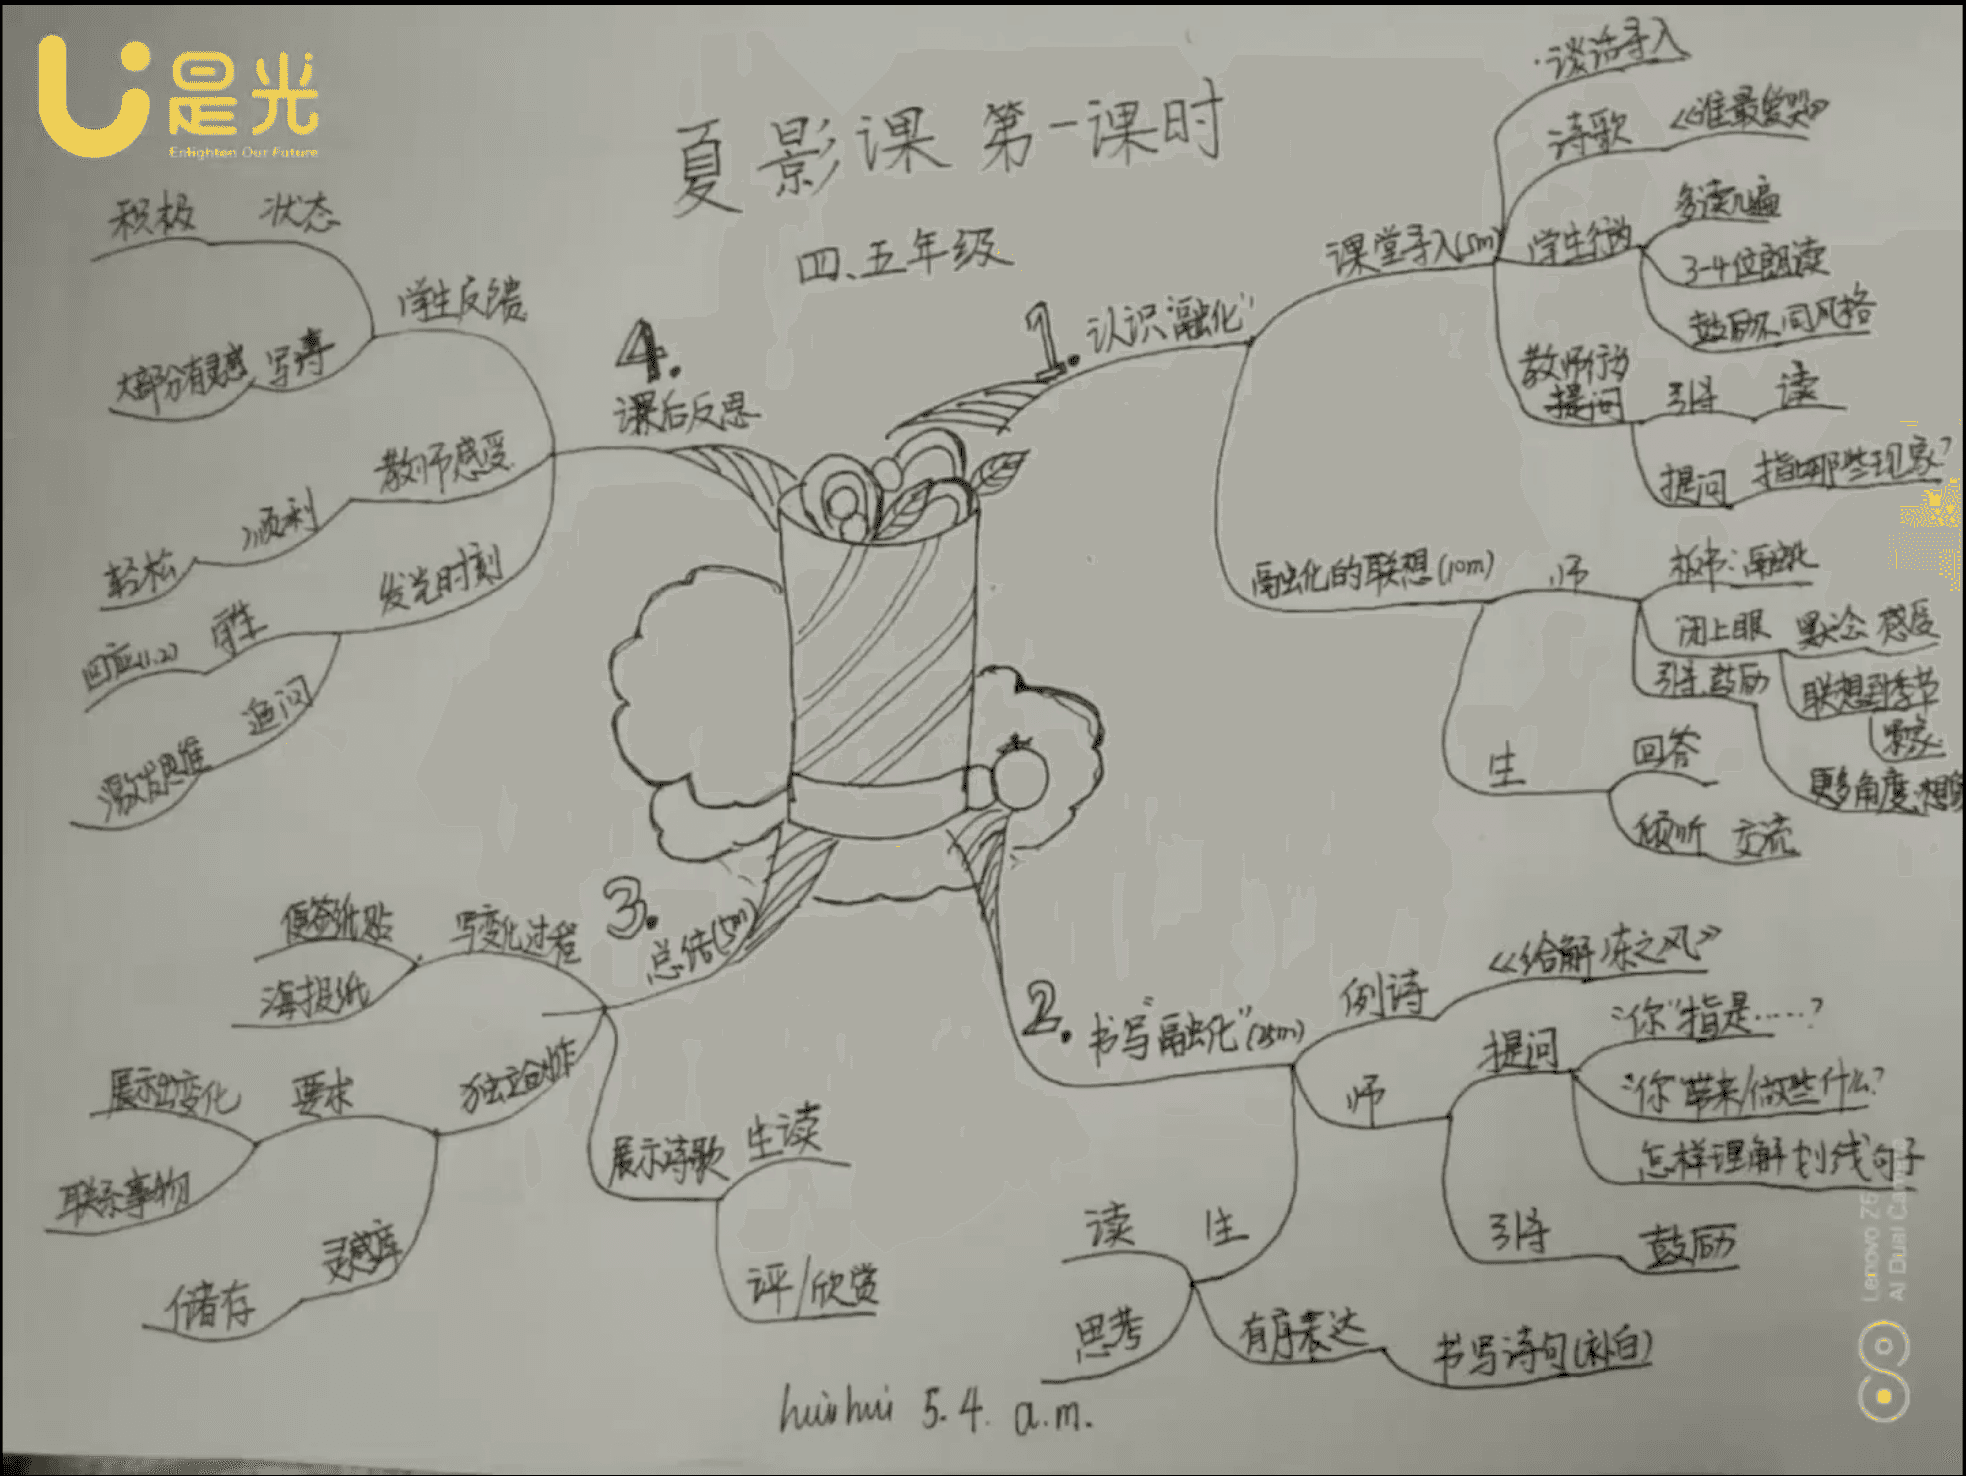 是光
Enlighten Our Future
夏影课 第一课时
四、五年级
1. 认识“融化”
课堂导入(5m)
谈话导入
诗歌 《谁最爱哭》
学生行为
多读几遍
3-4位朗读
鼓励不同风格
教师行为
提问
引导 读
提问 指出哪些现象?
融化的联想(10m)
师
板书:融化
闭上眼 默念 感受
联想到季节
景象
引导.鼓励
更多角度.想象
生
回答
倾听 交流
2. 书写“融化”(25m)
例诗 《给解冻之风》
师
提问
“你”指是……?
“你”带来/做些什么?
怎样理解划线句子
引导 鼓励
生
读
思考
有序表达 书写诗句(补白)
3. 总结(5m)
写变化过程
便签纸贴
海报纸
独立创作
要求
展示出变化
联系事物
灵感库
储存
展示诗歌
生读
评/欣赏
4. 课后反思
学生反馈
状态 积极
写诗 大部分有灵感
教师感受
顺利 轻松
发光时刻
学生 回应(1.2)
追问 激发思维
huihui 5.4. a.m.
Lenovo Z5
AI Dual Camera